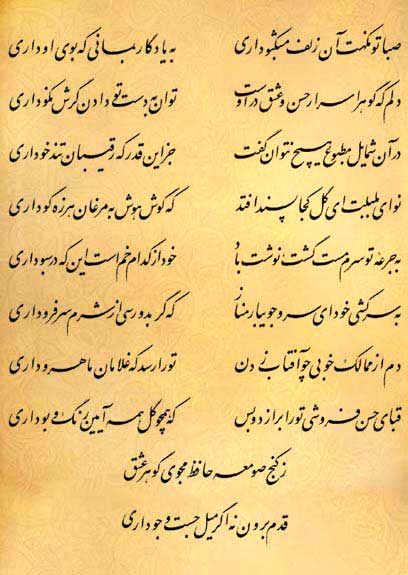 صبا تو نکهت آن زلف مشکبو داری به یادگار بمانی که بوی او داری
دلم که گوهر اسرار حسن و عشق در اوست توان به دست تو دادن گرش نکو داری
در آن شمایل مطبوع هیچ نتوان گفت جز این قدر که رقیبان تندخو داری
نوای بلبلت ای گل کجا پسند افتد که گوش هوش به مرغان هرزه گو داری
به جرعه تو سرم مست گشت نوشت باد خود از کدام خم است این که در سبو داری
به سرکشی خود ای سرو جویبار مناز که گر بدو رسی از شرم سر فرو داری
دم از ممالک خوبی چو آفتاب زدن تو را رسد که غلامان ماهرو داری
قبای حسن فروشی تو را برازد و بس که همچو گل همه آیین رنگ و بو داری
ز کنج صومعه حافظ مجوی گوهر عشق
قدم برون نه اگر میل جست و جو داری